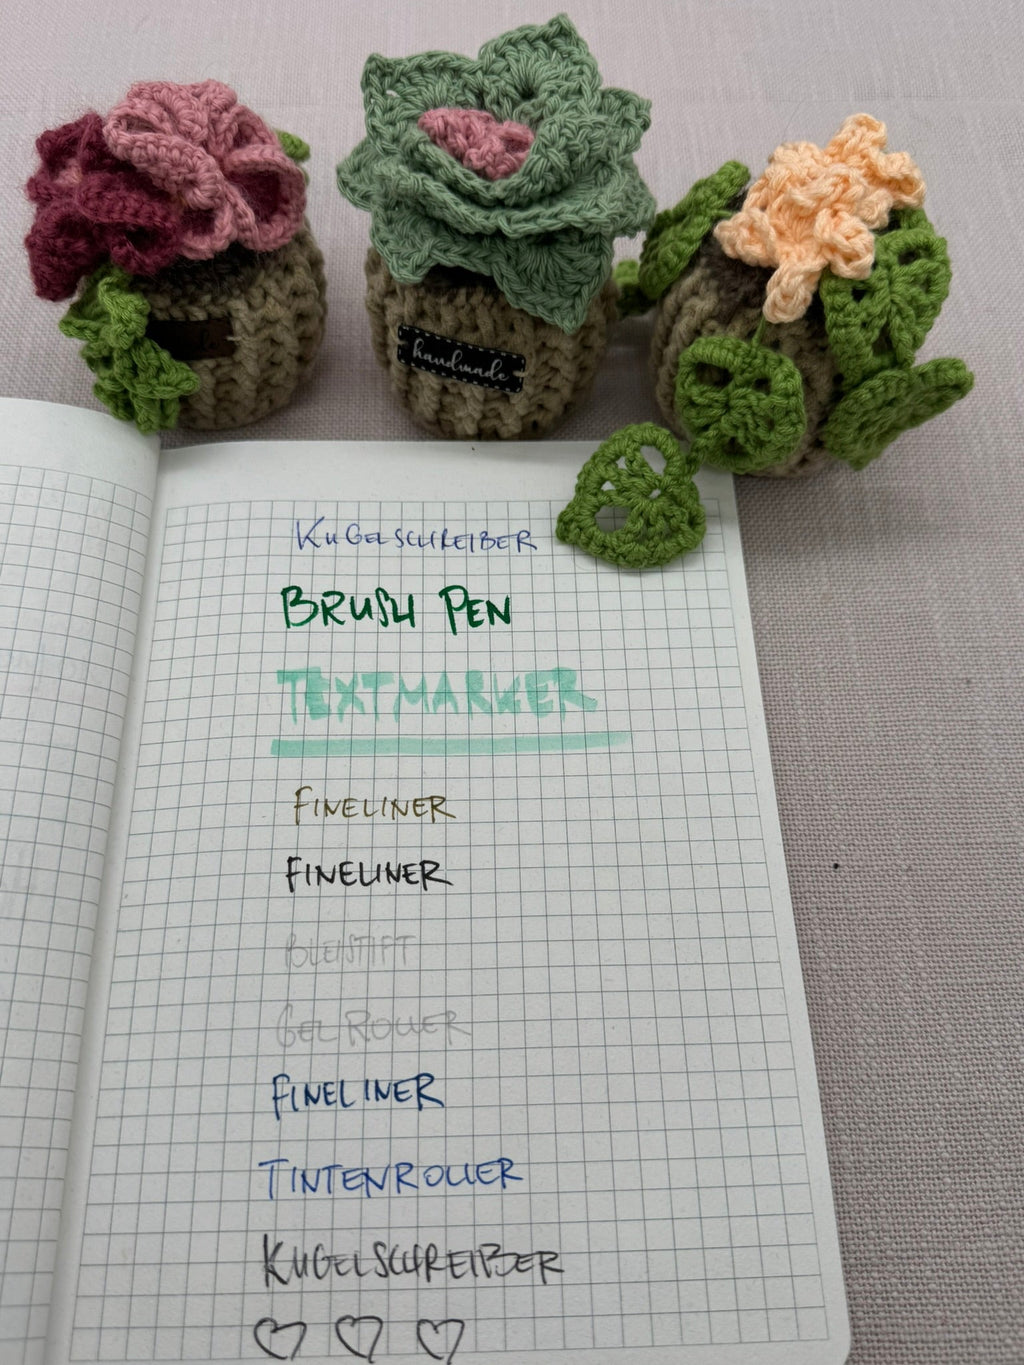 handmade
KUGELSCHREIBER
BRUSH PEN
TEXTMARKER
FINELINER
FINELINER
BLEISTIFT
GELROLLER
FINELINER
TINTENROLLER
KUGELSCHREIBER
♡ ♡ ♡